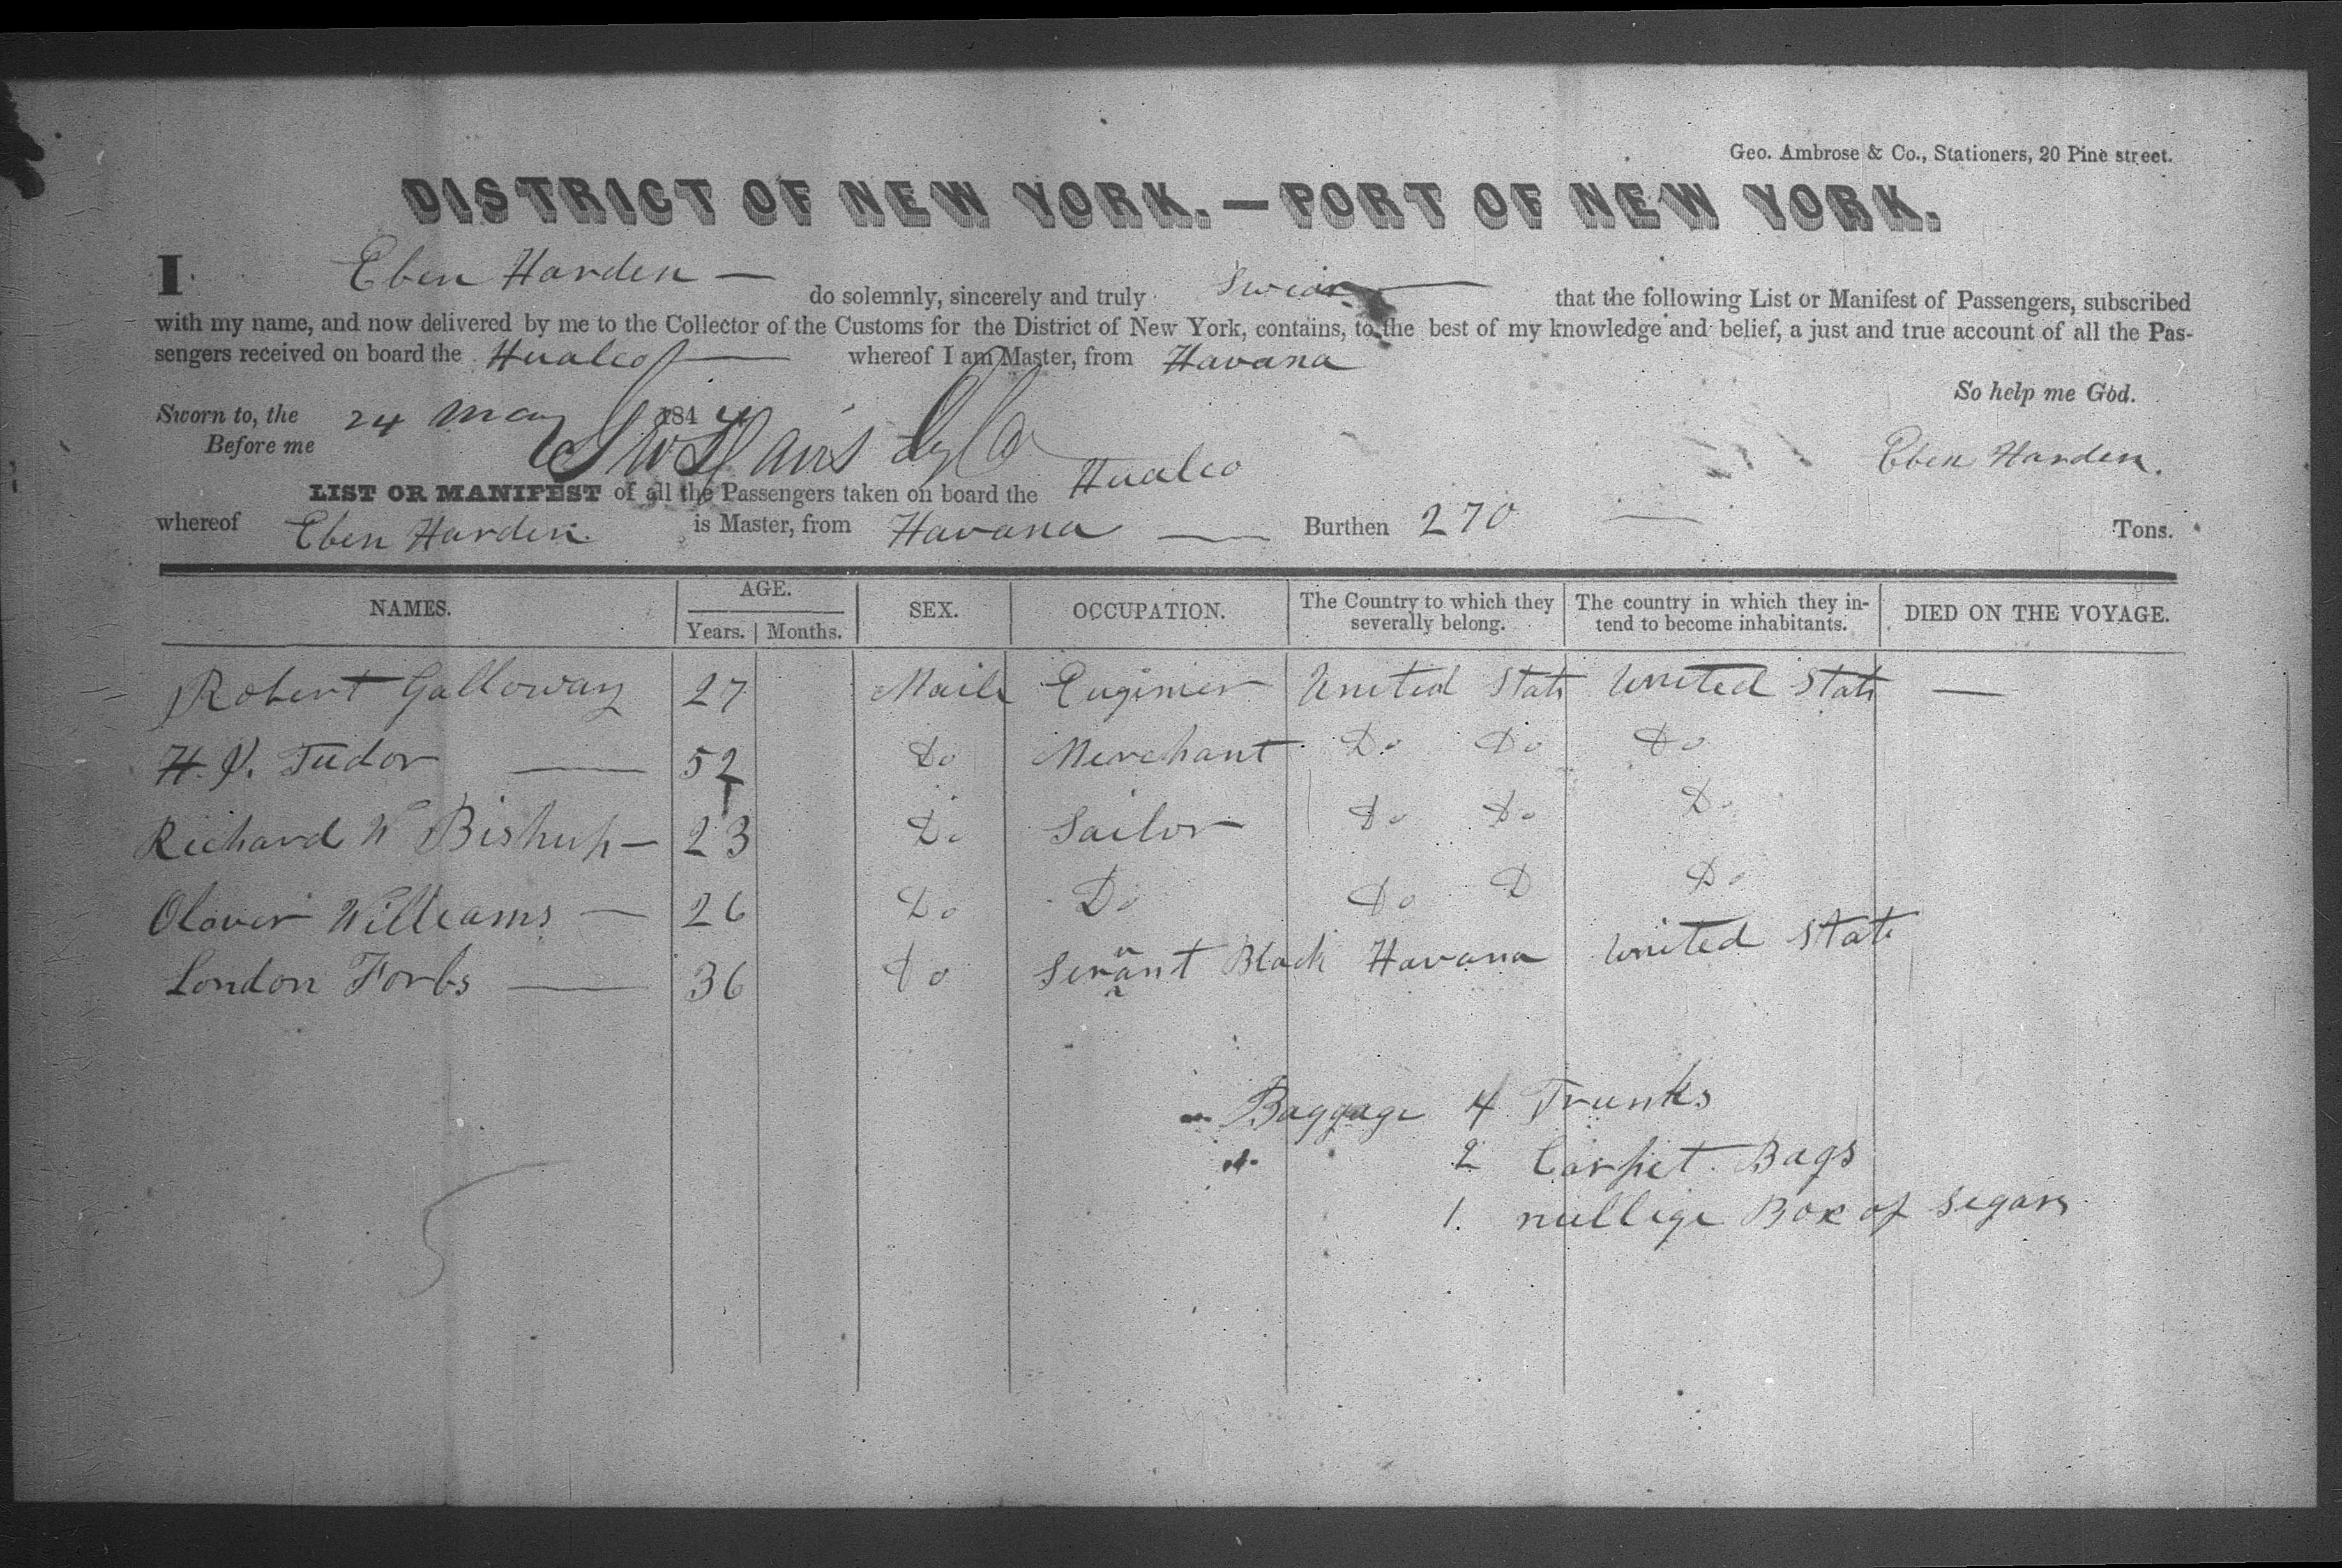 Geo. Ambrose & Co., Stationers, 20 Pine street.
DISTRICT OF NEW YORK.—PORT OF NEW YORK.
I Eben Harden — do solemnly, sincerely and truly swear — that the following List or Manifest of Passengers, subscribed
with my name, and now delivered by me to the Collector of the Customs for the District of New York, contains, to the best of my knowledge and belief, a just and true account of all the Pas-
sengers received on board the Hualco — whereof I am Master, from Havana
So help me God.
Sworn to, the 24 May 184
Before me
Eben Harden.
LIST OR MANIFEST of all the Passengers taken on board the Hualco
whereof Eben Harden. is Master, from Havana — Burthen 270 — Tons.
NAMES. AGE. SEX. OCCUPATION. The Country to which they severally belong. The country in which they in-tend to become inhabitants. DIED ON THE VOYAGE.
Years. Months.
Robert Galloway 27 Maile Enginier United Stats United Stats —
H. Tudor — 52 Do Merchant Do Do Do
Richard W Bishup — 23 Do Sailor Do Do Do
Olover Williams — 26 Do Do Do D Do
London Forbs — 36 Do Servant Black Havana United Stats
Baggage 4 Trunks
2 Carpet Bags
1. Box of Segars